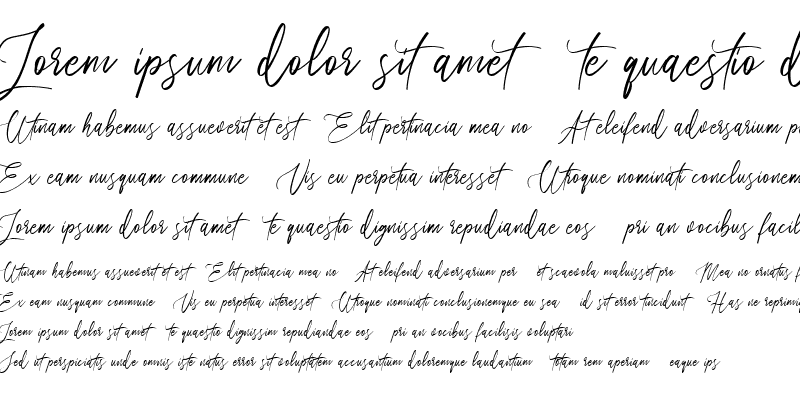 Lorem ipsum dolor sit amet te quaestio d
Utinam habemus assueverit et est Elit pertinacia mea no At eleifend adversarium p
Ex eam nusquam commune Vis eu perpetua interesset Utroque nominati conclusionem
Lorem ipsum dolor sit amet te quaestio dignissim repudiandae eos pri an vocibus facil
Utinam habemus assueverit et est Elit pertinacia mea no At eleifend adversarium per et scaevola maluisset pro Mea no ornatus f
Ex eam nusquam commune Vis eu perpetua interesset Utroque nominati conclusionemque eu sea id sit error tincidunt Has ne reprimiq
Lorem ipsum dolor sit amet te quaestio dignissim repudiandae eos pri an vocibus facilisis voluptari
Sed ut perspiciatis unde omnis iste natus error sit voluptatem accusantium doloremque laudantium totam rem aperiam eaque ips